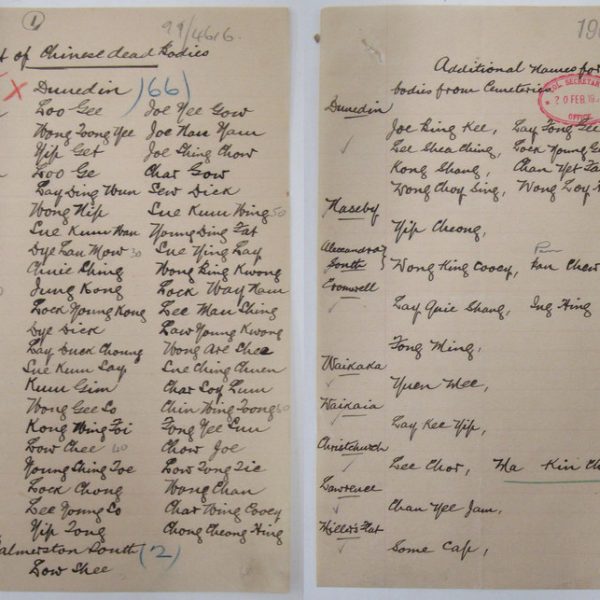 1
99/4616.
of Chinese dead Bodies
X Dunedin (66)
Loo Gee Joe Yee Gow
Wong Toong Yee Joe Nam Yam
Yip Get Joe Ching Chow
Loo Ge Char Gow
Lay Ding Wun Sew Dick
Wong Yip Sue Kum Wing 50
Sue Kum Wan Young Ding Fat
Dye Lau Mow 30 Sue Ying Lay
Quie Ching Wong King Kwong
Jung Kong Lock Way Nam
Lock Young Kong Lee Man Ching
Dye Dick Law Young Kwong
Lay Duck Choung Wong Are Shee
Sue Kum Lay Sue Ching Chuen
Kum Gim Char Loy Lum
Wong Gee So Chin Wing Toong 60
Kong Wing Foi Fong Yee Sun
Low Chee 40 Chow Joe
Young Ching Toe Low Tong Tie
Lock Chong Wong Chan
Lee Young So Char Wing Cooey
Yip Tong Chong Cheong Hing
Palmerston South (2)
Low Shee
Additional Names for
bodies from Cemeteries
SECRETAR
20 FEB
OFFICE
Dunedin
Joe King Kee, Lay Fong Gee
Lee Shea Ching, Lock Young
Kong Shang, Chan Yet
Wong Choy Sing, Wong Loy
Naseby
Yip Cheong,
Alexandra
South Wong King Cooey, Fan Chew
Cromwell
Lay Quie Shang, Ing Hing
Fong Ming,
Waikaka
Yuen Mee,
Waikaia
Lay Kee Yip,
Christchurch
Lee Chor, Ma Kin
Lawrence
Chan Yee Jam,
Miller's Flat
Some Cap,